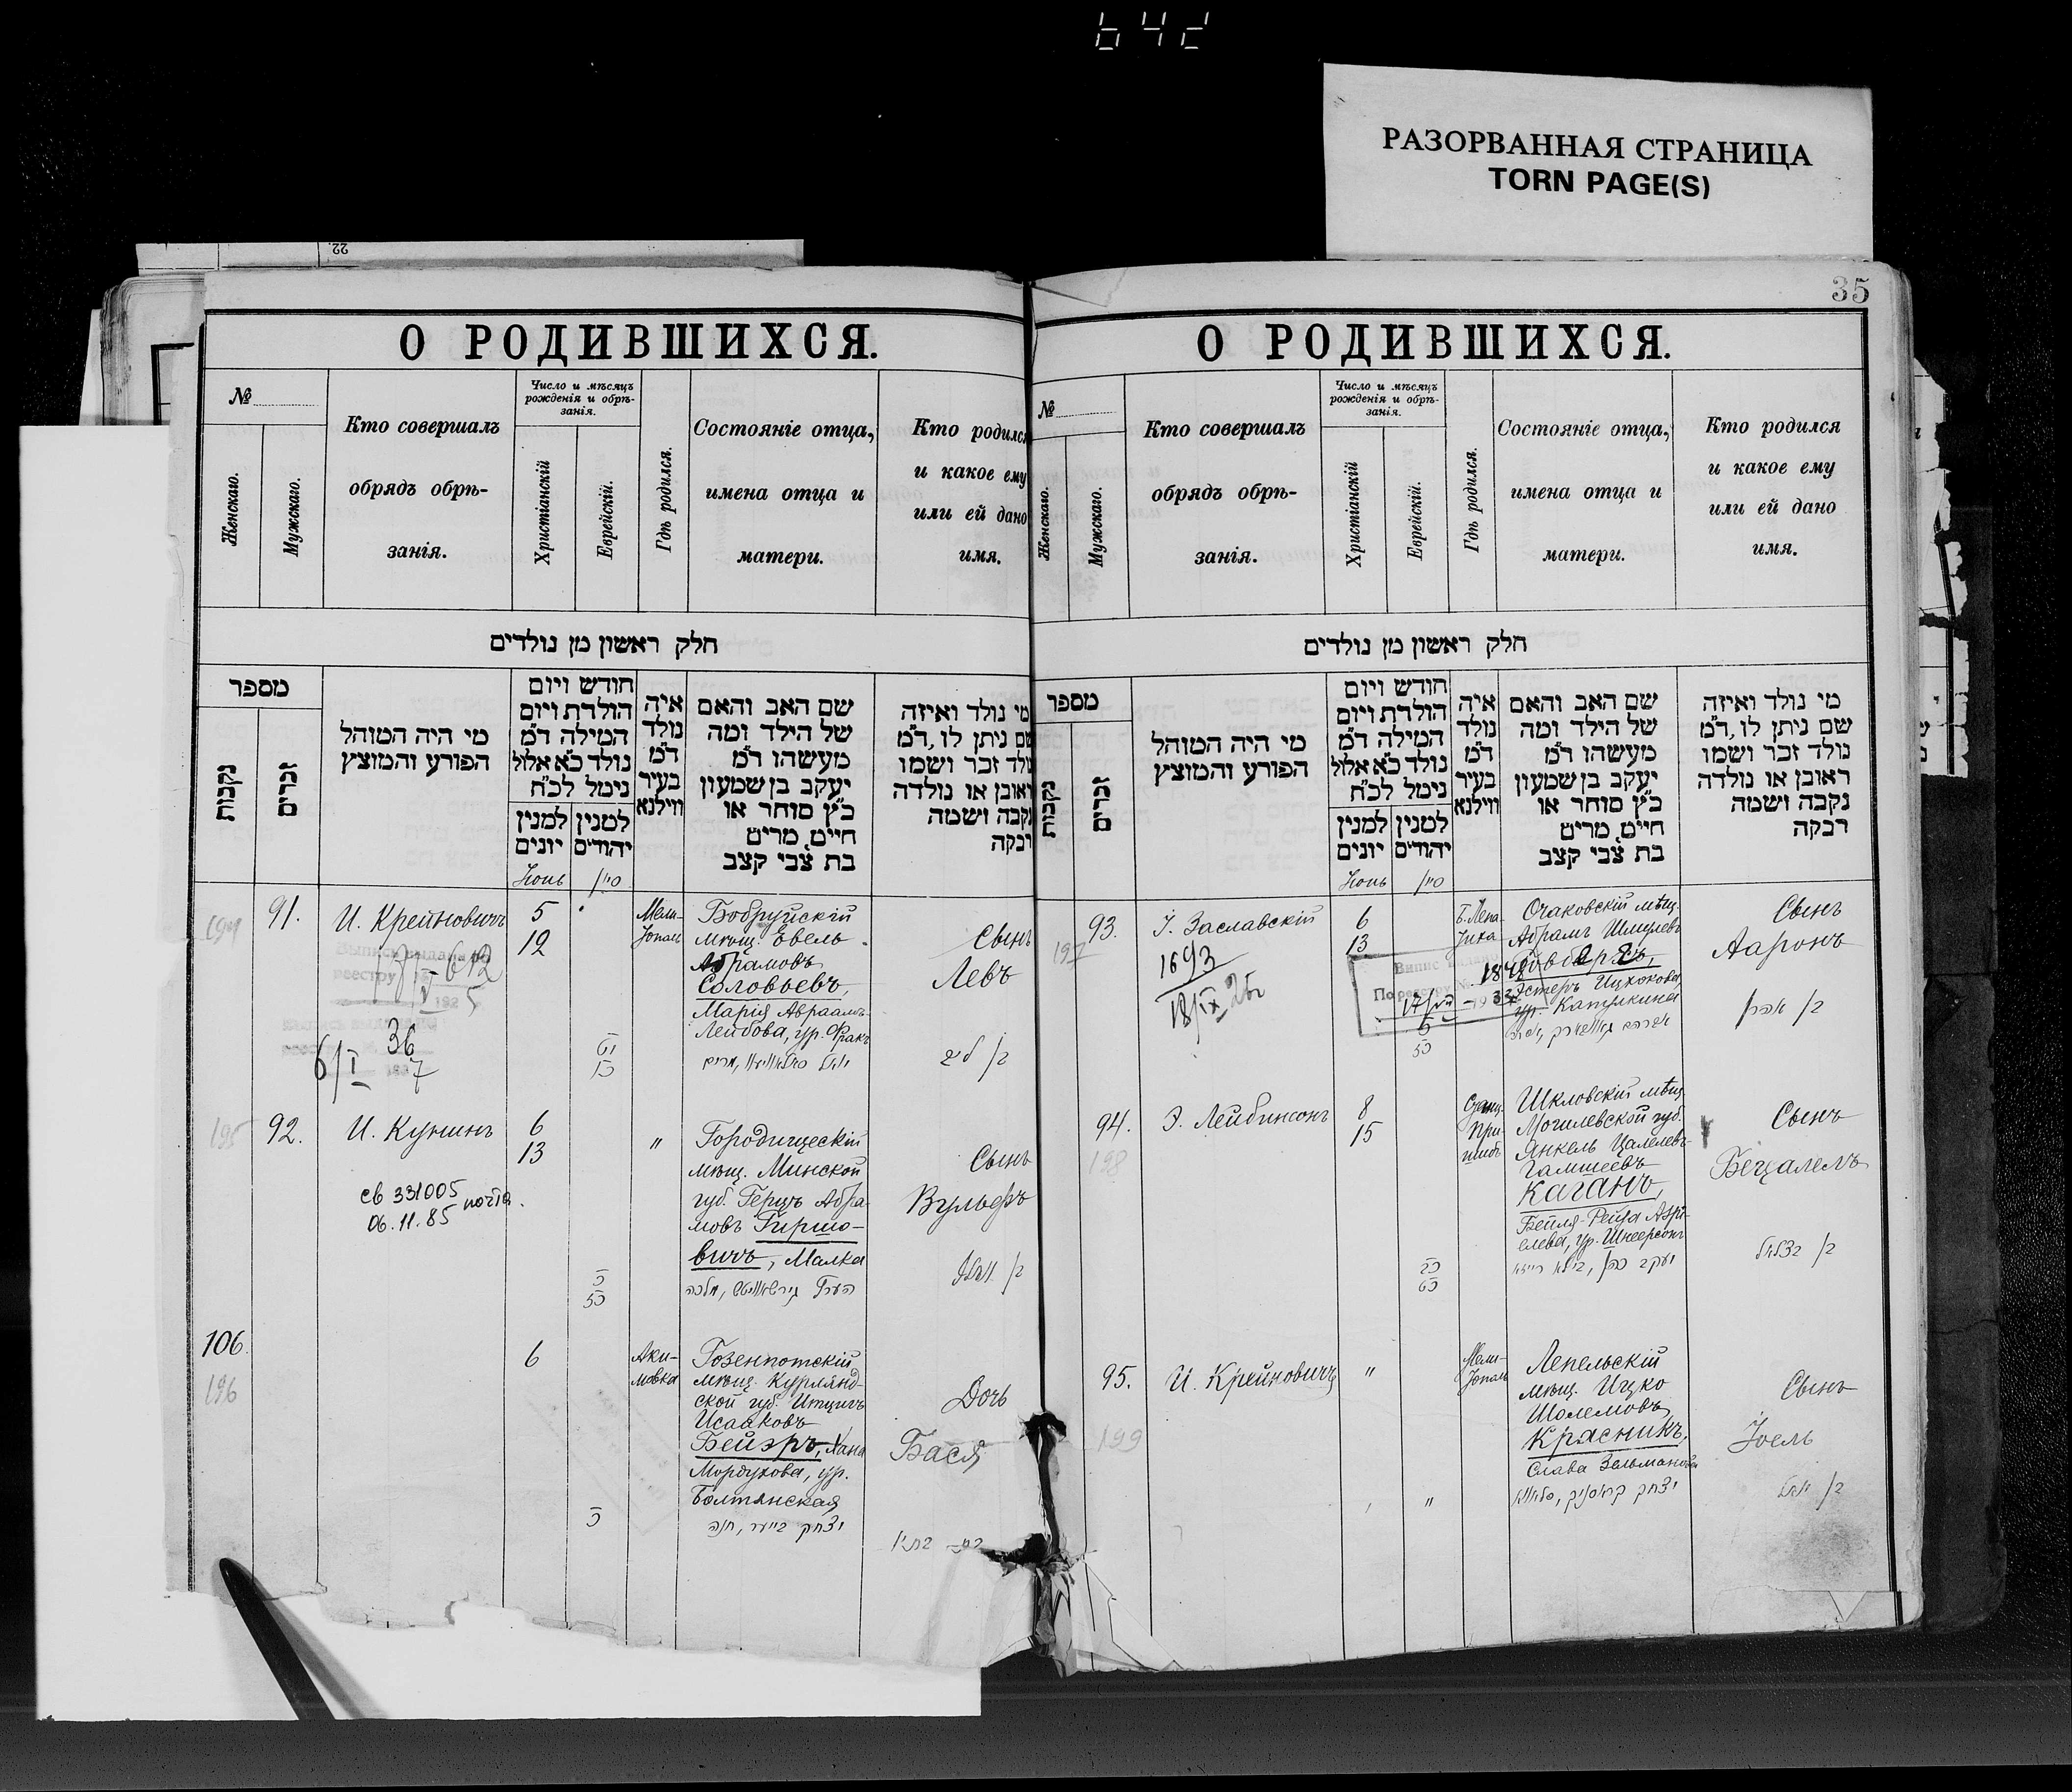 642
РАЗОРВАННАЯ СТРАНИЦА
TORN PAGE(S)
22.
35
О РОДИВШИХСЯ.
№
Женскаго.
Мужскаго.
Кто совершалъ
обрядъ обрѣ-
занія.
Число и мѣсяцъ
рожденія и обрѣ-
занія.
Христіанскій
Еврейскій.
Гдѣ родился.
Состояніе отца,
имена отца и
матери.
Кто родился
и какое ему
или ей дано
имя.
חלק ראשון מן נולדים
מספר
נקבות
זכרים
מי היה המוהל
הפורע והמוצץ
חודש ויום
הולדת ויום
המילה ד״מ
נולד כ״א אלול
נימל לכ״ח
למנין
יונים
למנין
יהודים
איה
נולד
ד״מ
בעיר
ווילנא
שם האב והאם
של הילד ומה
מעשהו ד״מ
יעקב בן שמעון
כ״ץ סוחר או
חיים, מרים
בת צבי קצב
מי נולד ואיזה
שם ניתן לו, ד״מ
נולד זכר ושמו
ראובן או נולדה
נקבה ושמה
רבקה
Іюнь
סיון
194
91.
И. Крейновичъ
5
12
Мели-
тополь
Бобруйскій
мѣщ. Евель
Абрамовъ
Соловьевъ,
Марія Авраамъ-
Лейбова, ур. Фракъ
Сынъ
Левъ
36
6/I 7
195
92.
И. Кунинъ
6
13
"
Городищескій
мѣщ. Минской
губ. Герцъ Абра-
мовъ Гиршо-
вичъ, Малка
Сынъ
Вульфъ
св 331005
06.11.85 почта.
106.
196
6
Аки-
мовка
Газенпотскій
мѣщ. Курлянд-
ской губ. Итцигъ
Исааковъ
Бейэръ, Хана
Мордухова, ур.
Болтянская
יצחק בייער, חנה
Дочь
Бася
О РОДИВШИХСЯ.
№
Женскаго.
Мужскаго.
Кто совершалъ
обрядъ обрѣ-
занія.
Число и мѣсяцъ
рожденія и обрѣ-
занія.
Христіанскій
Еврейскій.
Гдѣ родился.
Состояніе отца,
имена отца и
матери.
Кто родился
и какое ему
или ей дано
имя.
חלק ראשון מן נולדים
מספר
נקבות
זכרים
מי היה המוהל
הפורע והמוצץ
חודש ויום
הולדת ויום
המילה ד״מ
נולד כ״א אלול
נימל לכ״ח
למנין
יונים
למנין
יהודים
איה
נולד
ד״מ
בעיר
ווילנא
שם האב והאם
של הילד ומה
מעשהו ד״מ
יעקב בן שמעון
כ״ץ סוחר או
חיים, מרים
בת צבי קצב
מי נולד ואיזה
שם ניתן לו, ד״מ
נולד זכר ושמו
ראובן או נולדה
נקבה ושמה
רבקה
Іюнь
סיון
197
93.
І. Заславскій
6
13
Б. Лепа-
тиха
Очаковскій мѣщ.
Абрамъ Шмулевъ
Эстеръ Ицкокова,
ур. Капулкина
Сынъ
Ааронъ
בן אהרן
1693
94.
198
Э. Лейбинсонъ
8
15
Шкловскій мѣщ.
Могилевской губ.
Янкель Цалелевъ-
Гамшеевъ
Каганъ,
Бейля-Рейза Азрі-
елева, ур. Шнеерсонъ
יעקב כהן, ביילא רייזא
Сынъ
Бецалель
בן בצלאל
95.
199
И. Крейновичъ
"
"
Мели-
тополь
Лепельскій
мѣщ. Ицко
Шолемовъ
Красникъ,
Слава Зельманова
יצחק קראסניק, סלאווא
Сынъ
Іоель
בן יואל